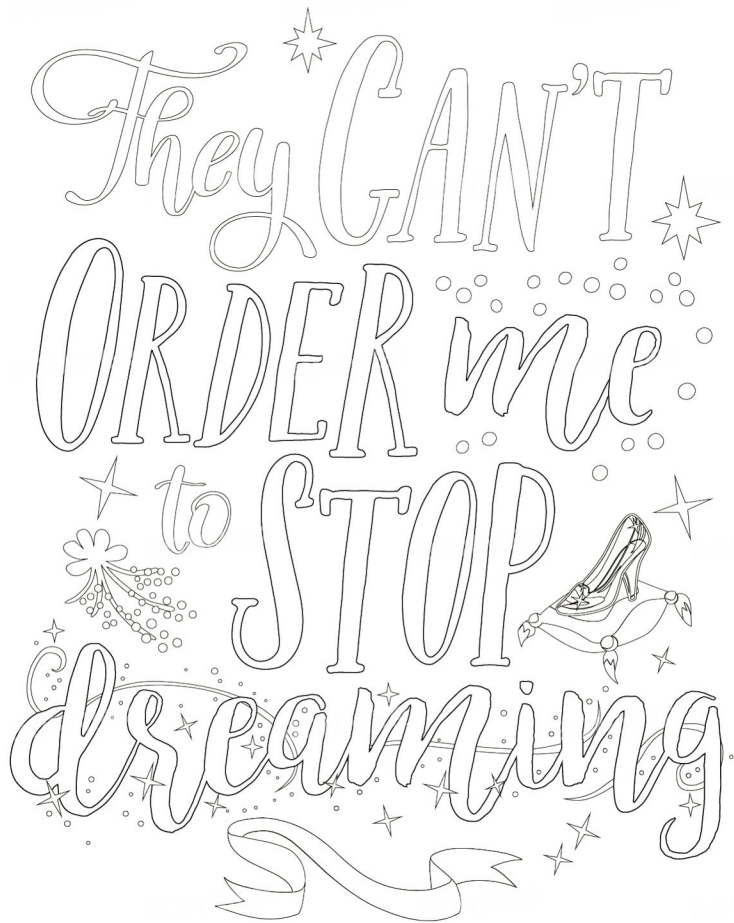 They CAN'T
ORDER me
to STOP
dreaming